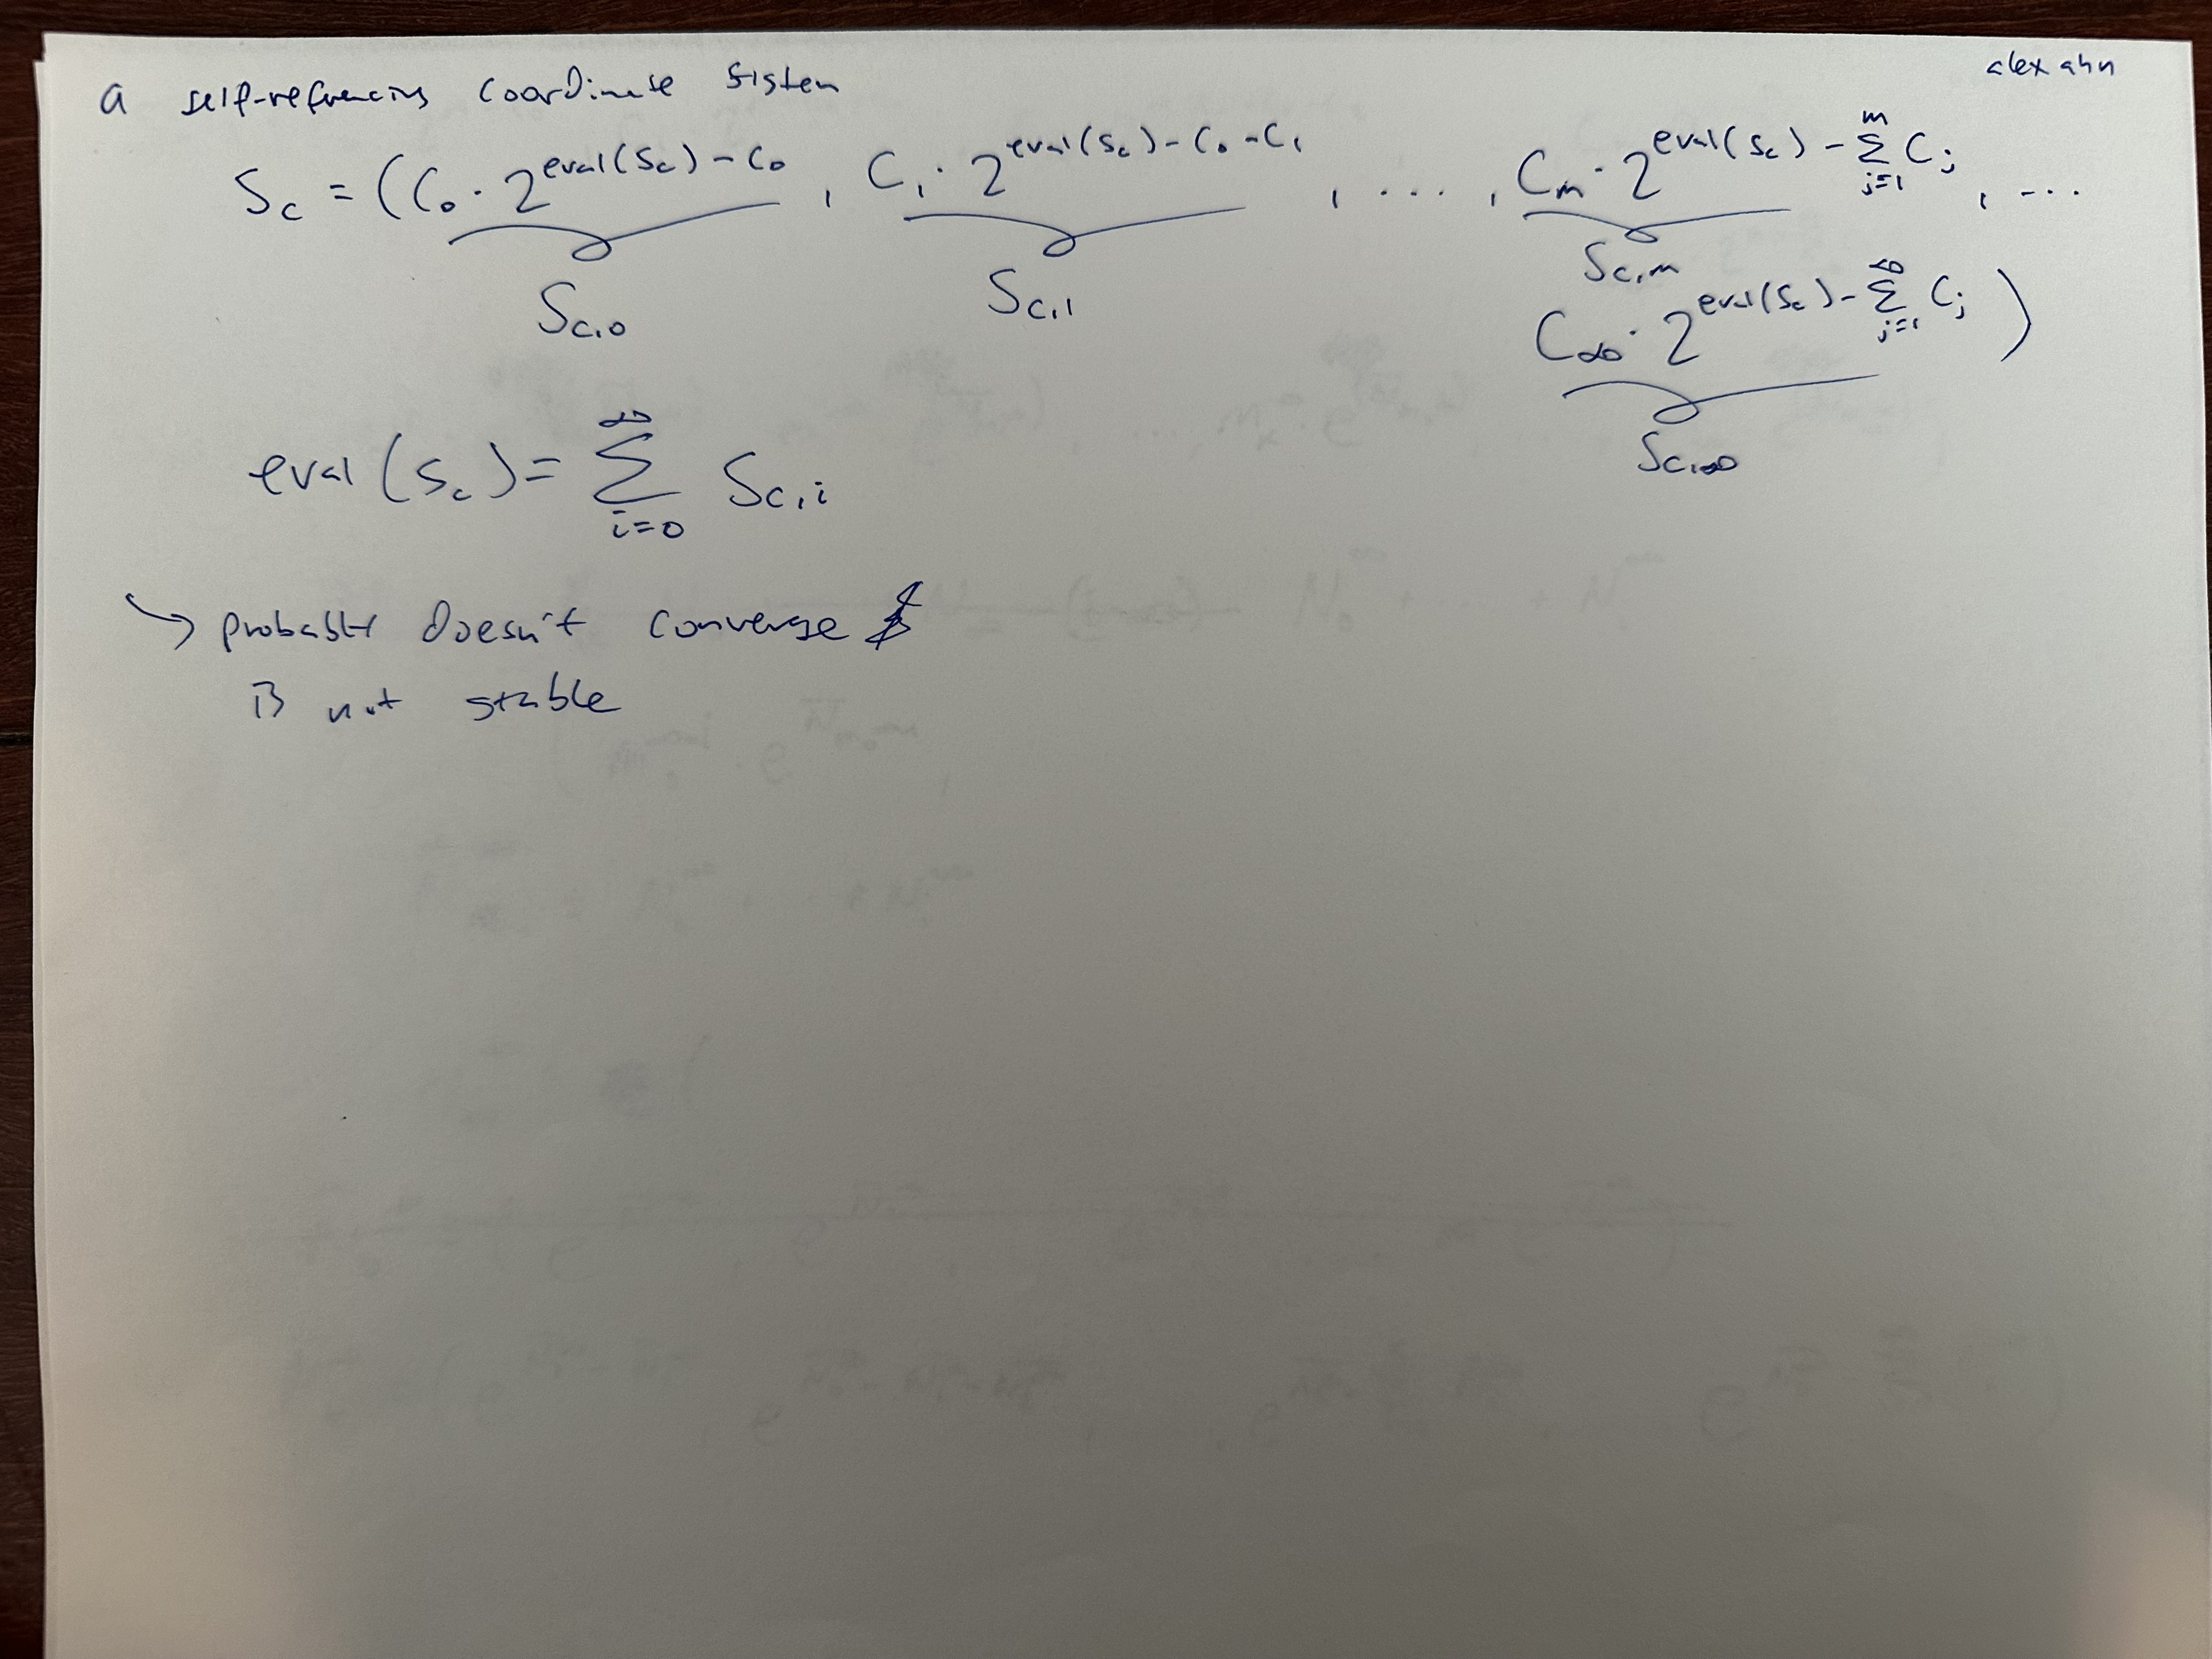 alex ahn
a self-refrencing coordinate sistem
S_c = (C_0 · 2^{eval(S_c) - C_0}, C_1 · 2^{eval(S_c) - C_0 - C_1}, ...., C_m · 2^{eval(S_c) - Σ_{j=1}^{m} C_j}, ...
S_{c,0} S_{c,1} S_{c,m}
C_∞ · 2^{eval(S_c) - Σ_{j=1}^{∞} C_j})
S_{c,∞}
eval(S_c) = Σ_{i=0}^{∞} S_{c,i}
↘ probably doesn't converge &
is not stable